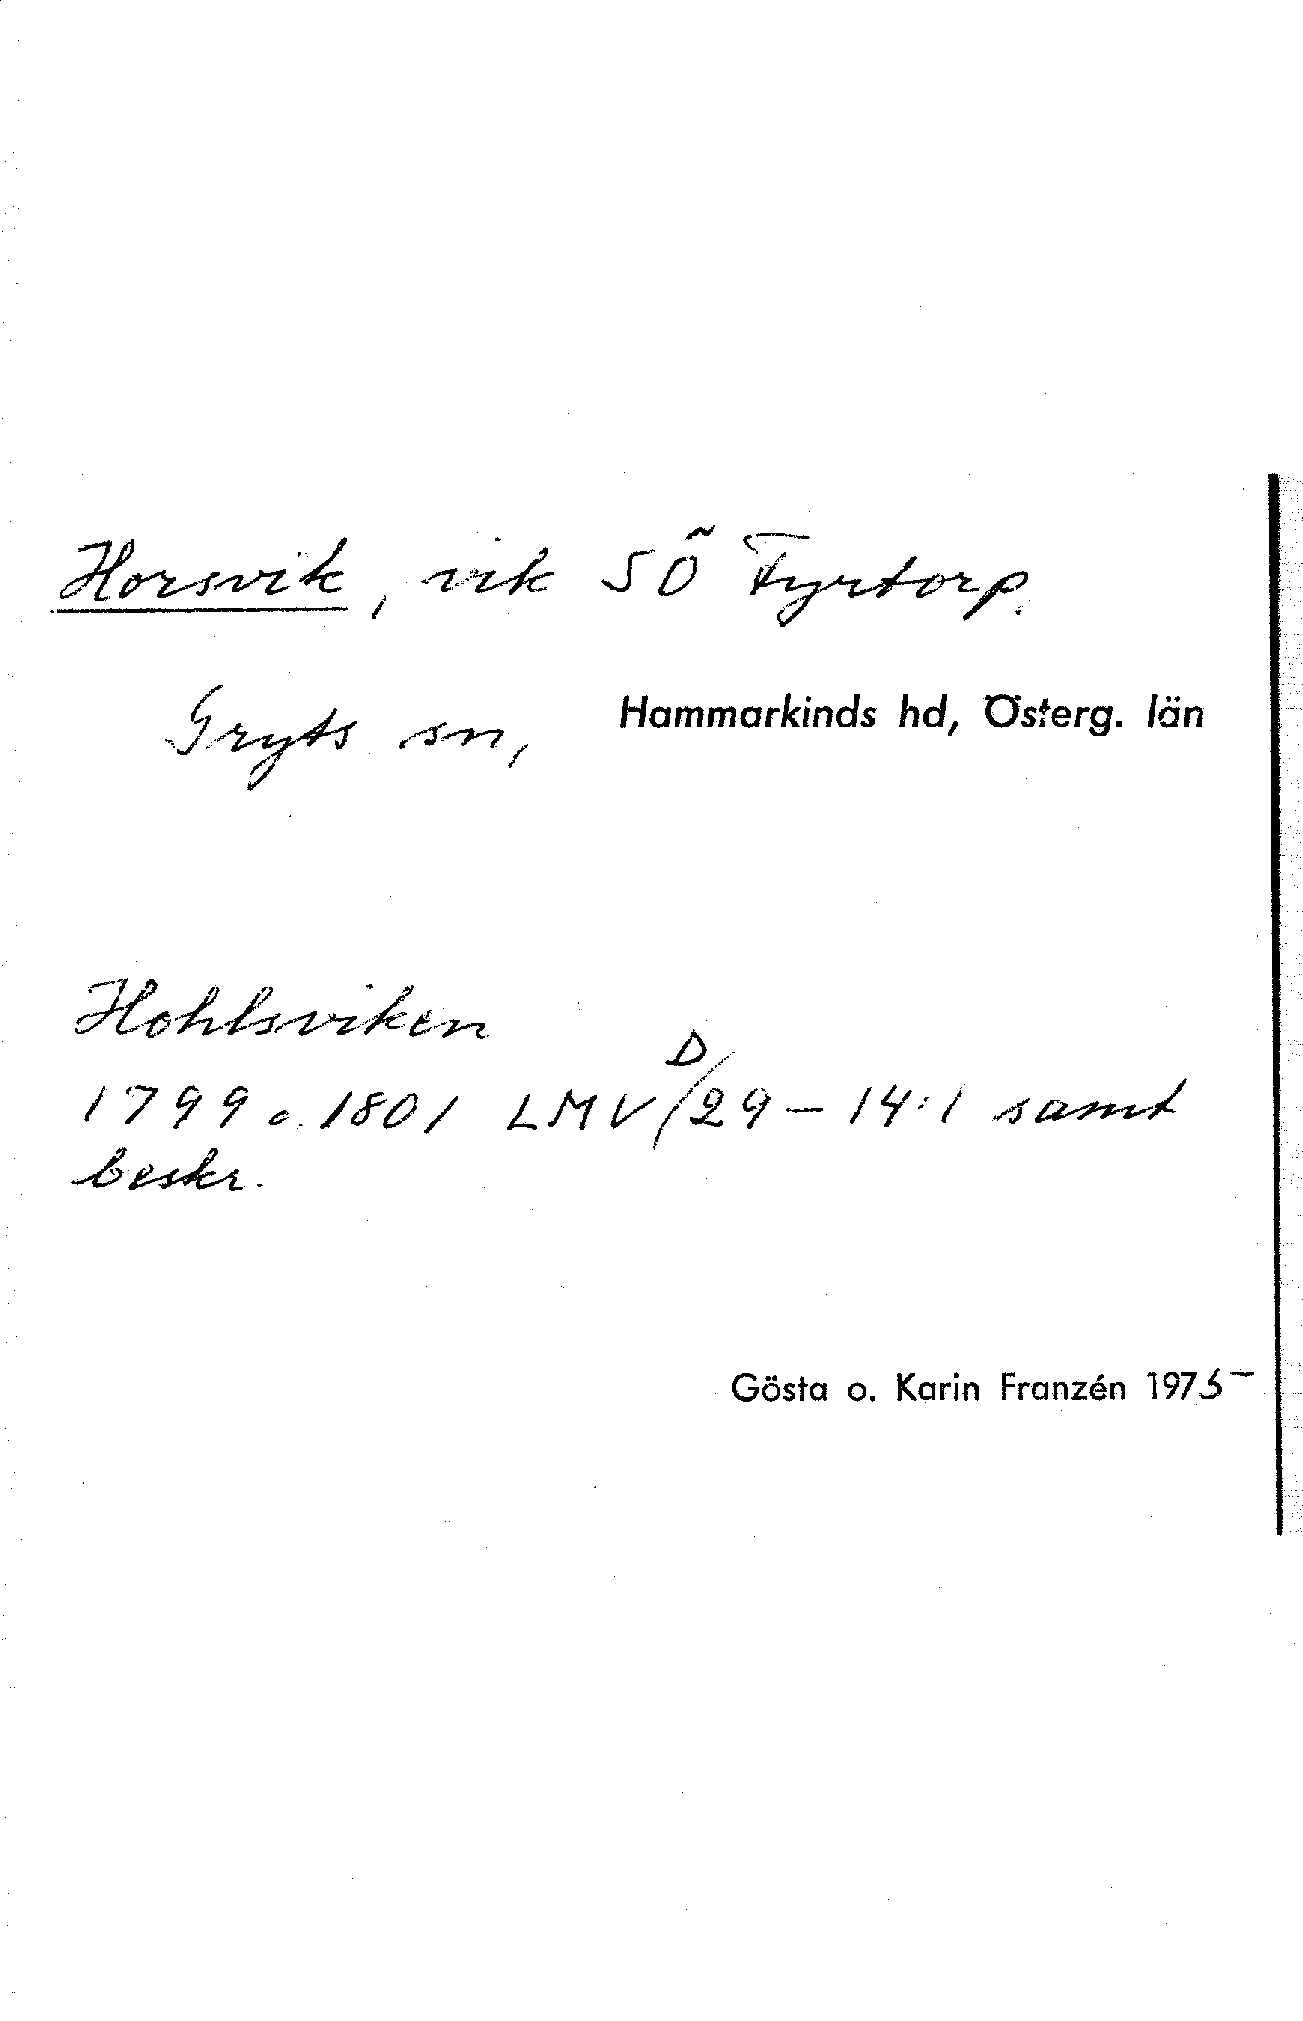 Horsvik, vik SÖ Fyrtorp.
Gryts sn, Hammarkinds hd, Österg. län
Hohlsviken
1799 o. 1801 LMV D/29-14:1 samt
beskr.
Gösta o. Karin Franzén 1975